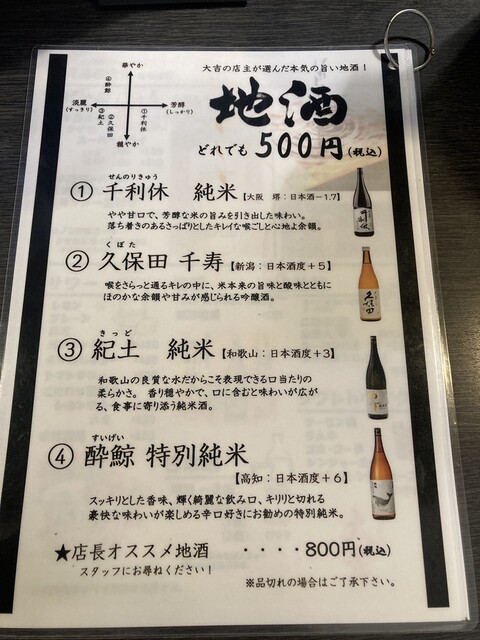 大吉の店主が選んだ本気の旨い地酒！
華やか
④酔鯨
淡麗
(すっきり)
芳醇
(しっかり)
①千利休
②久保田
③紀土
穏やか
地酒
どれでも 500円(税込)
せんのりきゅう
① 千利休 純米【大阪 堺：日本酒－1.7】
やや甘口で、芳醇な米の旨みを引き出した味わい。
落ち着きのあるさっぱりとしたキレイな喉ごしと心地よ余韻。
くぼた
② 久保田 千寿【新潟：日本酒度＋5】
喉をさらっと通るキレの中に、米本来の旨味と酸味とともに
ほのかな余韻や甘みが感じられる吟醸酒。
きっど
③ 紀土 純米【和歌山：日本酒度＋3】
和歌山の良質な水だからこそ表現できる口当たりの
柔らかさ。 香り穏やかで、口に含むと味わいが広が
る、食事に寄り添う純米酒。
すいげい
④ 酔鯨 特別純米
【高知：日本酒度＋6】
スッキリとした香味、輝く綺麗な飲み口、キリリと切れる
豪快な味わいが楽しめる辛口好きにお勧めの特別純米。
★店長オススメ地酒 ・・・・800円(税込)
スタッフにお尋ねください！
※品切れの場合はご了承下さい。
千利休
久保田